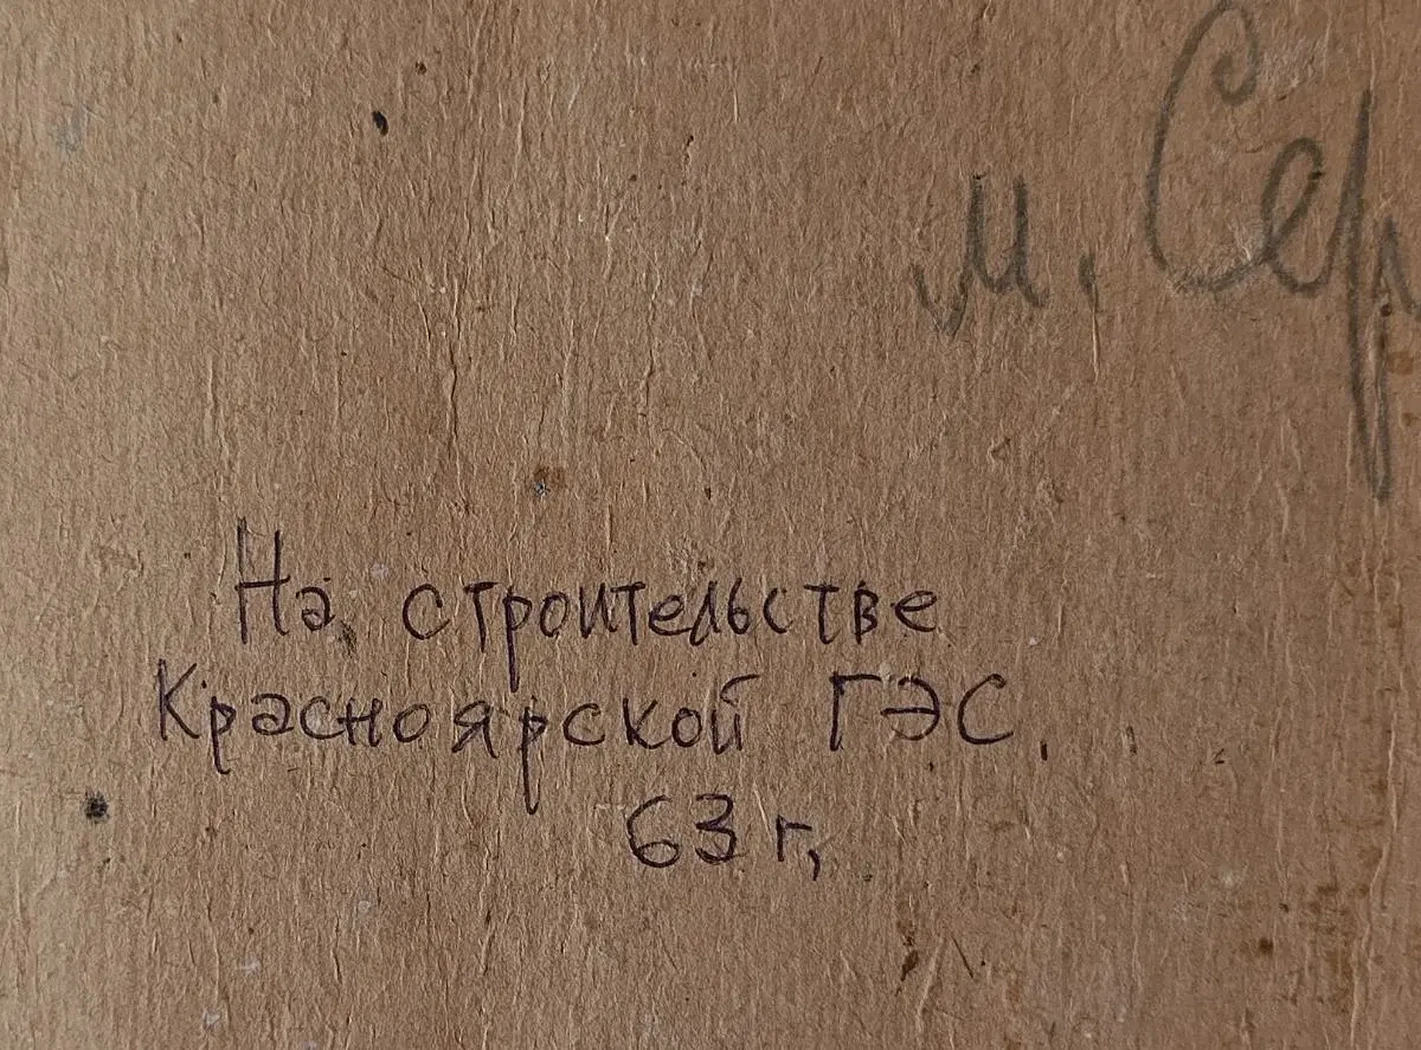 м. Сер
На строительстве
Красноярской ГЭС.
63 г,